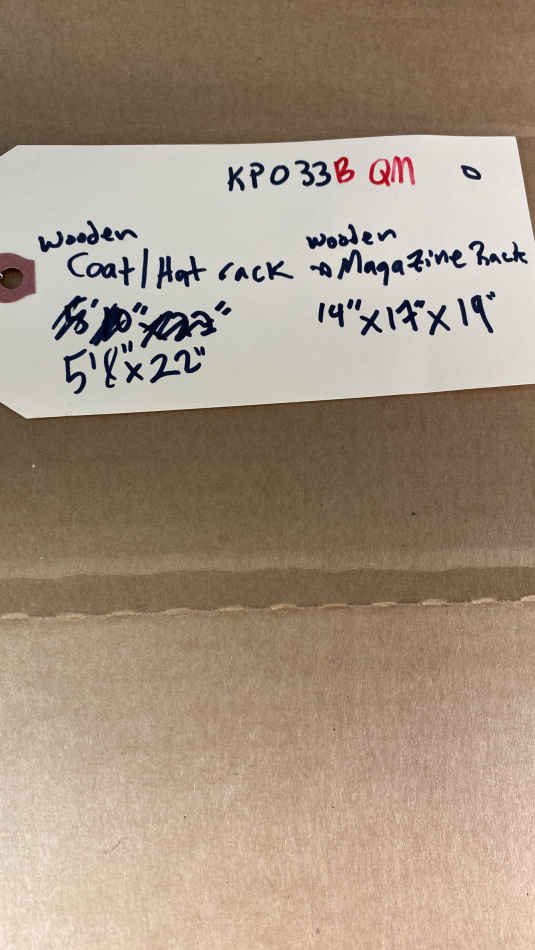 KP033B QM
wooden
Coat/Hat rack
5'8"x22"
wooden
Magazine Rack
14"x17"x19"